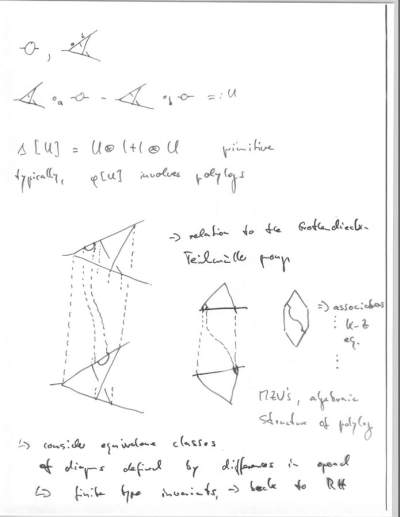 ∘a - ∘b =: U
Δ[U] = U⊗1+1⊗U primitive
typically, φ[U] involves polylogs
→ relation to the Grothendieck-
Teichmüller group
⇒ associators
K-Z
eq.
MZV's, algebraic
structure of polylog
↳ consider equivalence classes
of diagrams defined by differences in
↳ finite type invariants, → back to RH